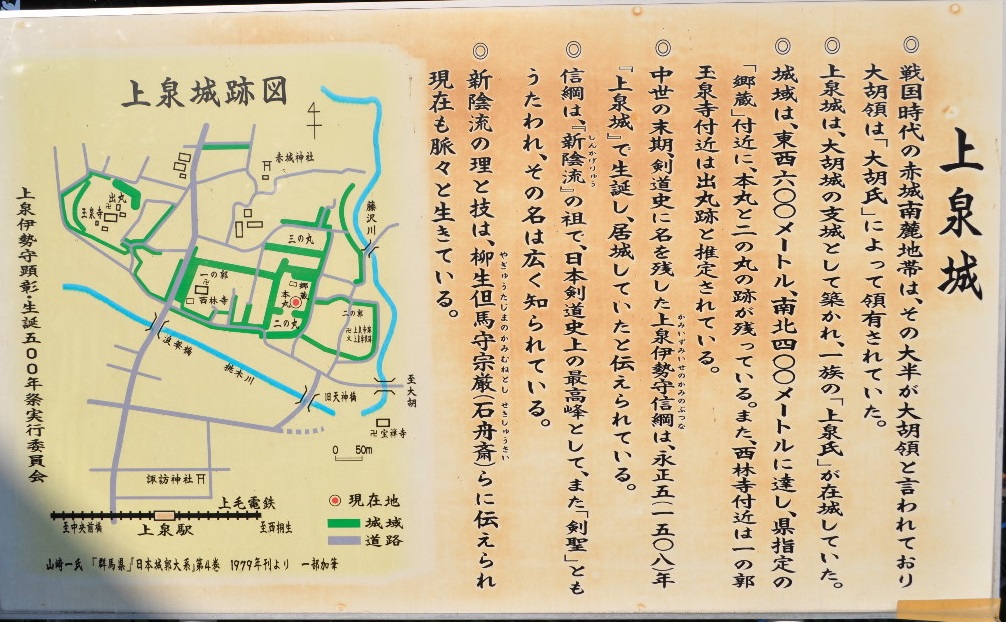 上泉城
◎戦国時代の赤城南麓地帯は、その大半が大胡領と言われており
大胡領は「大胡氏」によって領有されていた。
◎上泉城は、大胡城の支城として築かれ、一族の「上泉氏」が在城していた。
◎城域は、東西六〇〇メートル、南北四〇〇メートルに達し、県指定の
「郷蔵」付近に、本丸と二の丸の跡が残っている。また、西林寺付近は一の郭
玉泉寺付近は出丸跡と推定されている。
◎中世の末期、剣道史に名を残した上泉伊勢守信綱は、永正五(一五〇八)年
かみいずみいせのかみのぶつな
『上泉城』で生誕し、居城していたと伝えられている。
◎信綱は、『新陰流』の祖で、日本剣道史上の最高峰として、また「剣聖」とも
しんかげりゅう
うたわれ、その名は広く知られている。
◎新陰流の理と技は、柳生但馬守宗厳(石舟斎)らに伝えられ
やぎゅうたじまのかみむねとし せきしゅうさい
現在も脈々と生きている。
上泉城跡図
赤城神社
出丸
玉泉寺
藤沢川
三の丸
一の郭
西林寺
郷蔵
本丸
二の丸
二の郭
浪華橋
桃木川
旧天神橋
至大胡
宝禅寺
0 50m
諏訪神社
上毛電鉄
至中央前橋
上泉駅
至西桐生
現在地
城域
道路
山崎一氏 「群馬県」『日本城郭大系』第4巻 1979年刊より 一部加筆
上泉伊勢守顕彰・生誕五〇〇年祭実行委員会